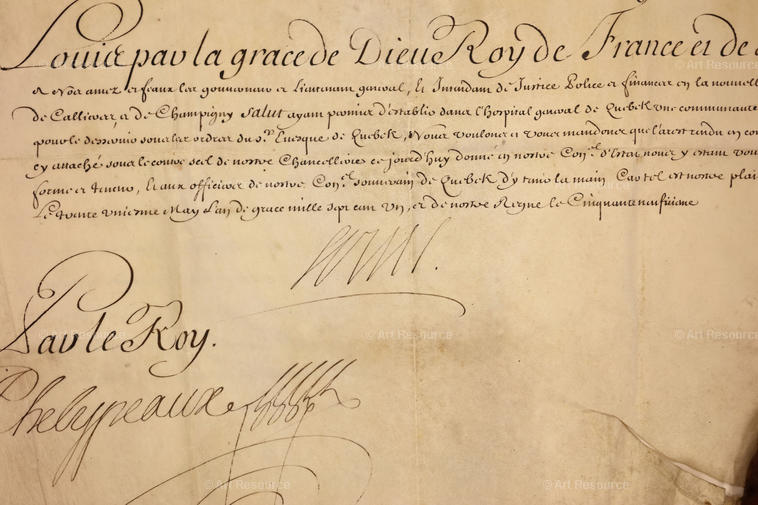 Louis par la grace de Dieu Roy de France et de
A Nos amez et feaux les gouverneur et Lieutenant general, et Intendant de Justice Police et finances en la nouvelle
de Callieres, et de Champigny Salut ayant permis d'establir dans l'hospital general de Quebek une communauté
pour le desservir sous les ordres du Sr. Evesque de Quebek, Nous voulons et vous mandons que l'arest rendu en
cy attaché sous le contre scel de nostre Chancellerie ce jourd'huy donné en nostre Con.el d'Estat nous y estant
forme et teneur, et aux officiers de nostre Con.el souverain de Quebek d'y tenir la main Car tel est nostre
Le trente unieme May L'an de grace mille sept cens un, et de nostre Regne le Cinquante neufieme
Louis.
Par le Roy.
Phelypeaux
© Art Resource
© Art Resource
© Art Resource
© Art Resource
© Art Resource
© Art Resource